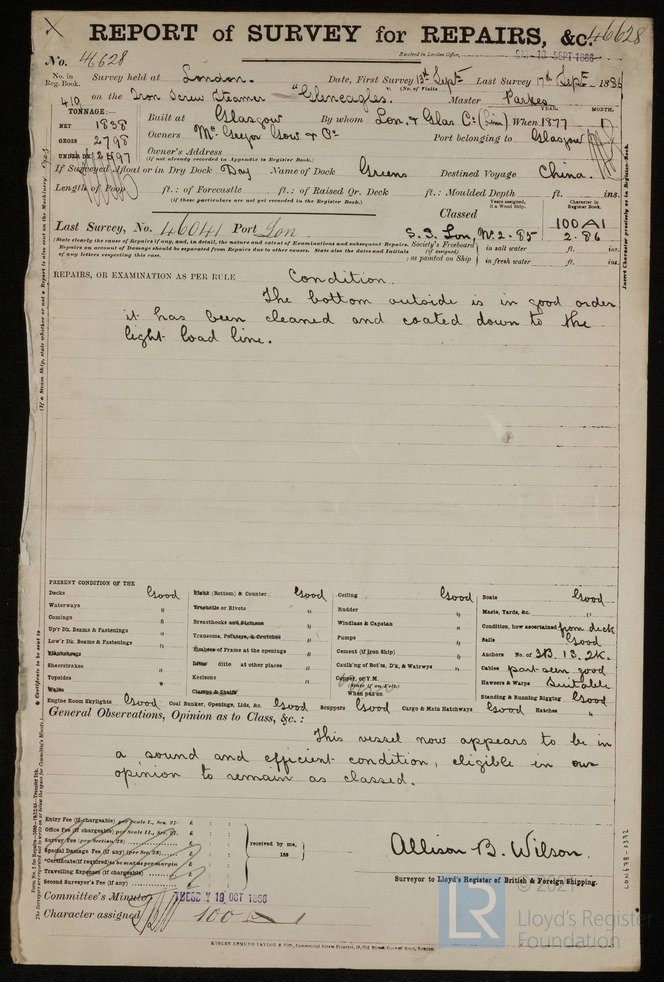 REPORT of SURVEY for REPAIRS, &c. 46628
No. 46628
Received in London Office, SAT. 18 SEPT 1886
No. in Reg. Book. Survey held at London. Date, First Survey 13th Sept Last Survey 17th Sept 1886
(No. of Visits
419 on the Iron Screw Steamer "Gleneagles." Master Parkes
TONNAGE:— Built at Glasgow By whom Lon. & Glas Co (Lim) When 1877
YEAR. MONTH.
NET 1838
GROSS 2798
UNDER DK 2597
Owners Mc Gregor Gow & Co Port belonging to Glasgow
Owner's Address
(If not already recorded in Appendix to Register Book.)
If Surveyed Afloat or in Dry Dock Dry Name of Dock Greens Destined Voyage China.
Length of Poop ft.: of Forecastle ft.: of Raised Qr. Deck ft.: Moulded Depth ft. ins.
(if these particulars are not yet recorded in the Register Book.)
Classed
Years assigned, if a Wood Ship. Character in Register Book.
100 A1
2.86
Last Survey, No. 46041 Port Lon. S.S. Lon, No. 2.85
(State clearly the cause of Repairs if any, and, in detail, the nature and extent of Examinations and subsequent Repairs. Repairs on account of Damage should be separated from Repairs due to other causes. State also the dates and Initials of any letters respecting this case.
Society's Freeboard (if assigned) as painted on Ship
in salt water ft. ins.
in fresh water ft. ins.
REPAIRS, OR EXAMINATION AS PER RULE Condition.
The bottom outside is in good order
it has been cleaned and coated down to the
light load line.
PRESENT CONDITION OF THE
Decks Good
Waterways "
Comings "
Up'r Dk. Beams & Fastenings "
Low'r Dk. Beams & Fastenings "
Sheerstrakes "
Topsides "
Wales
Plank (Bottom) & Counter Good
Treenails or Rivets "
Breasthooks and Stemson "
Transoms, Pointers, & Crutches "
Timbers or Frame at the openings "
ditto at other places "
Keelsons "
Clamps & Shelfs
Ceiling Good
Rudder "
Windlass & Capstan "
Pumps "
Cement (if Iron Ship) "
Caulk'ng of Bot'm, D'k, & Watrwys "
Copper, or Y.M.
When put on
Boats Good
Masts, Yards, &c. "
Condition, how ascertained from deck
Sails Good
Anchors No. of 3B. 1S. 2K.
Cables part seen good
Hawsers & Warps Suitable
Standing & Running Rigging Good
Engine Room Skylights Good Coal Bunker, Openings, Lids, &c. Good Scuppers Good Cargo & Main Hatchways Good Hatches "
General Observations, Opinion as to Class, &c. :
This vessel now appears to be in
a sound and efficient condition, eligible in our
opinion to remain as classed.
Entry Fee (if chargeable) per Scale I., Sec. 27: £ : :
Office Fee (if chargeable) per Scale II., Sec. 27: £ : :
Survey Fee (per Section 28) £ : :
Special Damage Fee (if any) (per Sec. 28) £ : :
*Certificate (if required) to be sent as per margin
Travelling Expenses (if chargeable) £ : :
Second Surveyor's Fee (if any) £ : :
received by me,
188
Allison B. Wilson.
Surveyor to Lloyd's Register of British & Foreign Shipping.
Committee's Minute TUESDAY 19 OCT 1886
Character assigned 100 A 1
ROBERT EDMUND TAYLOR & SON
LON678-0392
© 2021
LR
Lloyd's Register
Foundation